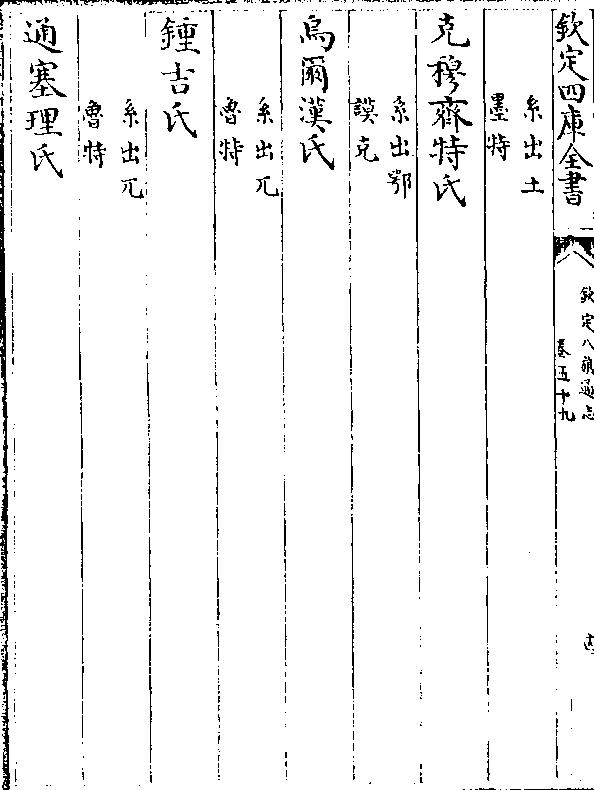 欽定四庫全書
欽定八旗通志
卷五十九
系出土
墨特
克穆齊特氏
系出鄂
謨克
烏爾漢氏
系出兀
魯特
鍾吉氏
系出兀
魯特
通塞理氏